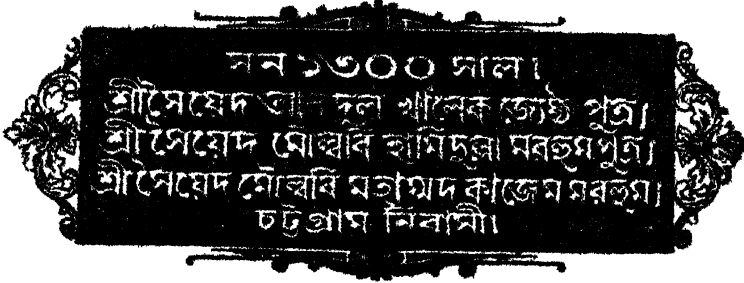 সন ১৩০০ সাল।
শ্রী সৈয়েদ আবদুল খালেক জ্যেষ্ঠ পুত্র।
শ্রী সৈয়েদ মৌলবি হামিদুল্লা মরহুম পুত্র।
শ্রী সৈয়েদ মৌলবি মহাম্মদ কাজেম মরহুম।
চট্টগ্রাম নিবাসী।